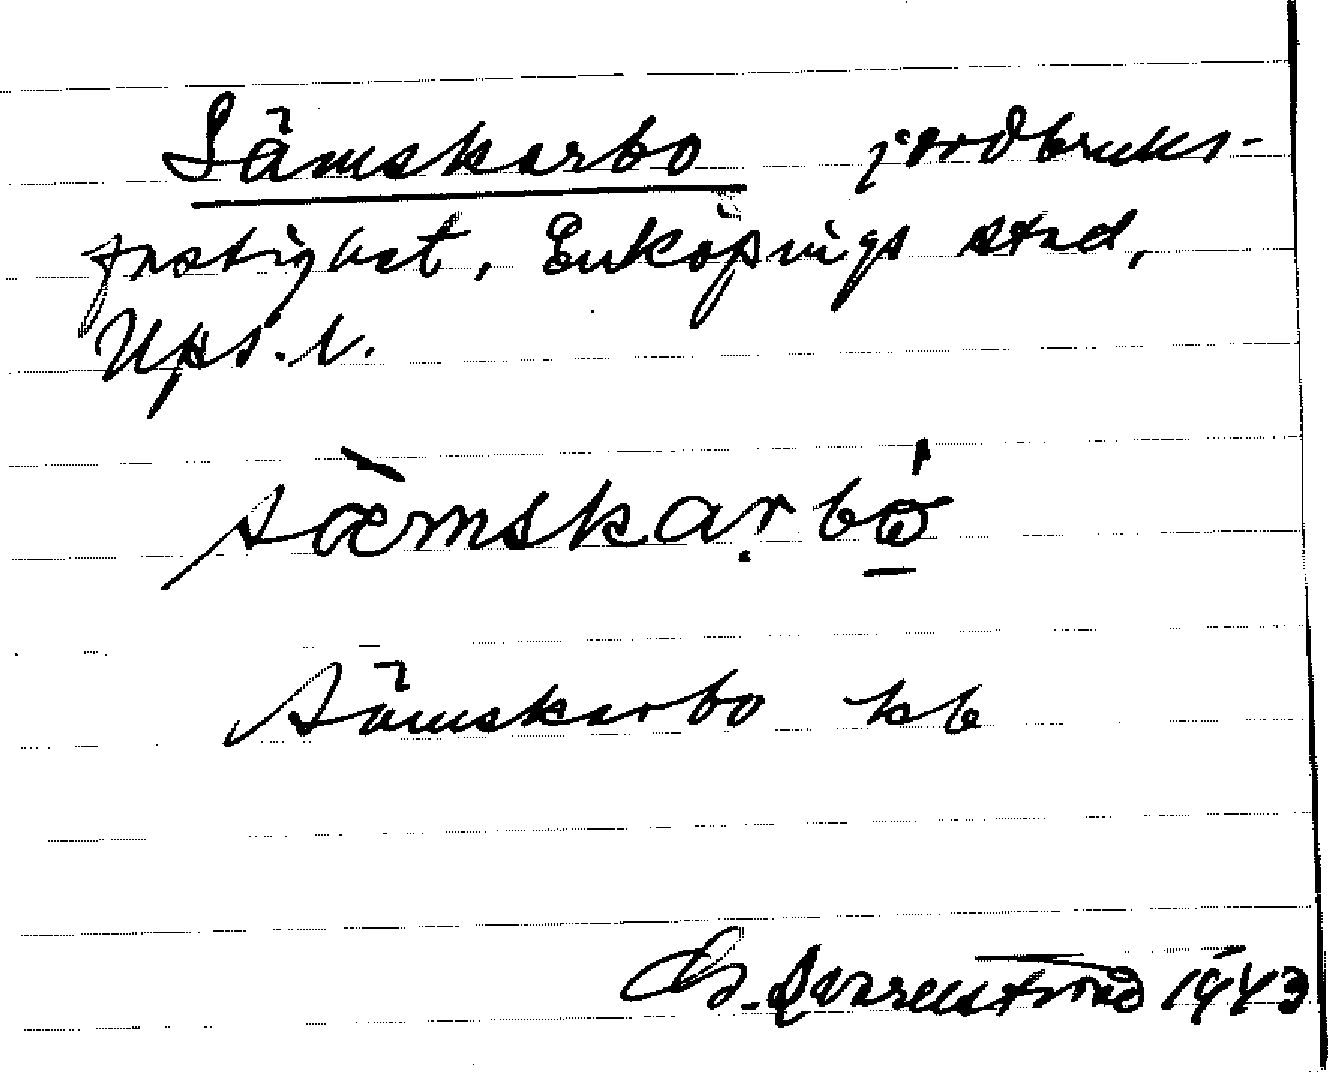 Sämskarbo jordbruks-
fastighet, Enköpings stad,
Upps. l.
sæ̀mskaṛbó̱
Sämskarbo kb
1943